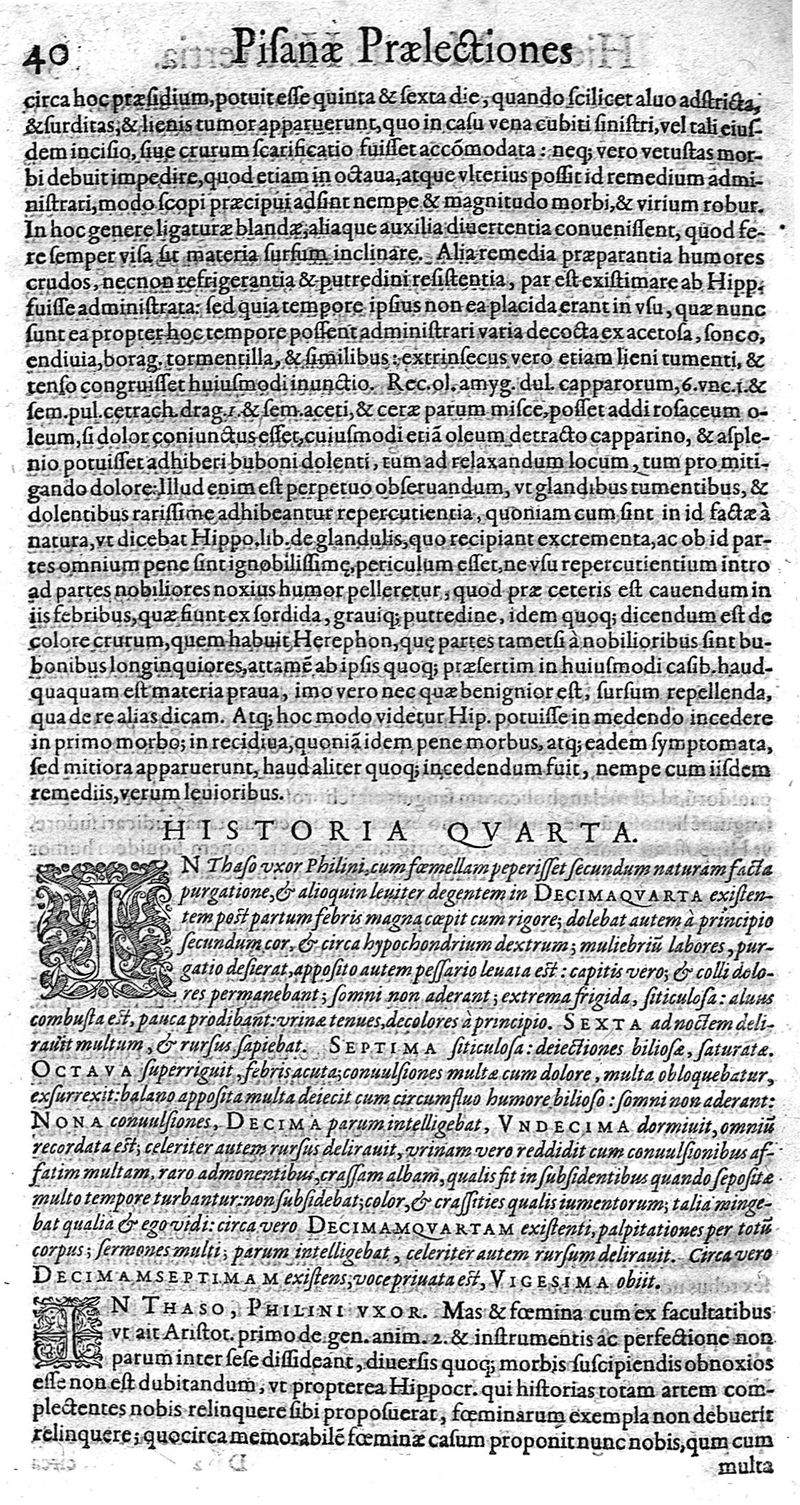 40 Piſanæ Prælectiones
circa hoc præſidium, potuit eſſe quinta & ſexta die, quando ſcilicet aluo adſtricta,
& ſurditas, & lienis tumor apparuerunt, quo in caſu vena cubiti ſiniſtri, vel tali eiuſ-
dem inciſio, ſiue crurum ſcarificatio fuiſſet accōmodata : neq; vero vetuſtas mor-
bi debuit impedire, quod etiam in octaua, atque vlterius poſſit id remedium admi-
niſtrari, modo ſcopi præcipui adſint nempe & magnitudo morbi, & virium robur.
In hoc genere ligaturæ blandæ, aliaque auxilia diuertentia conueniſſent, quod fe-
re ſemper viſa ſit materia ſurſum inclinare. Alia remedia præparantia humores
crudos, necnon refrigerantia & putredini reſiſtentia, par eſt exiſtimare ab Hipp.
fuiſſe adminiſtrata: ſed quia tempore ipſius non ea placida erant in vſu, quæ nunc
ſunt ea propter hoc tempore poſſent adminiſtrari varia decocta ex acetoſa, ſonco,
endiuia, borag. tormentilla, & ſimilibus : extrinſecus vero etiam lieni tumenti, &
tenſo congruiſſet huiuſmodi inunctio. Rec. ol. amyg. dul. capparorum, 6. vnc. 1. &
ſem. pul. cetrach. drag. 1. & ſem. aceti, & ceræ parum miſce, poſſet addi roſaceum o-
leum, ſi dolor coniunctus eſſet, cuiuſmodi etiā oleum detracto capparino, & aſple-
nio potuiſſet adhiberi buboni dolenti, tum ad relaxandum locum, tum pro miti-
gando dolore. Illud enim eſt perpetuo obſeruandum, vt glandibus tumentibus, &
dolentibus rariſſime adhibeantur repercutientia, quoniam cum ſint in id factæ à
natura, vt dicebat Hippo. lib. de glandulis, quo recipiant excrementa, ac ob id par-
tes omnium pene ſint ignobiliſſimę, periculum eſſet, ne vſu repercutientium intro
ad partes nobiliores noxius humor pelleretur, quod præ ceteris eſt cauendum in
iis febribus, quæ fiunt ex ſordida, grauiq; putredine, idem quoq; dicendum eſt de
colore crurum, quem habuit Herephon, quę partes tametſi à nobilioribus ſint bu-
bonibus longinquiores, attamē ab ipſis quoq; præſertim in huiuſmodi caſib. haud-
quaquam eſt materia praua, imo vero nec quæ benignior eſt, ſurſum repellenda,
qua de re alias dicam. Atq; hoc modo videtur Hip. potuiſſe in medendo incedere
in primo morbo; in recidiua, quoniā idem pene morbus, atq; eadem ſymptomata,
ſed mitiora apparuerunt, haud aliter quoq; incedendum fuit, nempe cum iiſdem
remediis, verum leuioribus.
HISTORIA QVARTA.
IN Thaſo vxor Philini, cum fœmellam peperiſſet ſecundum naturam facta
purgatione, & alioquin leuiter degentem in DECIMAQVARTA exiſten-
tem poſt partum febris magna cœpit cum rigore; dolebat autem à principio
ſecundum cor, & circa hypochondrium dextrum; muliebriū labores, pur-
gatio deſierat, appoſito autem peſſario leuata eſt : capitis vero; & colli dolo-
res permanebant; ſomni non aderant; extrema frigida, ſiticuloſa: aluus
combuſta eſt, pauca prodibant: vrinæ tenues, decolores à principio. SEXTA ad noctem deli-
rauit multum, & rurſus ſapiebat. SEPTIMA ſiticuloſa: deiectiones bilioſæ, ſaturatæ.
OCTAVA ſuperriguit, febris acuta; conuulſiones multæ cum dolore, multa obloquebatur,
exſurrexit: balano appoſita multa deiecit cum circumfluo humore bilioſo : ſomni non aderant:
NONA conuulſiones, DECIMA parum intelligebat, VNDECIMA dormiuit, omniū
recordata eſt; celeriter autem rurſus delirauit, vrinam vero reddidit cum conuulſionibus af-
fatim multam, raro admonentibus, craſſam albam, qualis fit in ſubſidentibus quando ſepoſitæ
multo tempore turbantur: non ſubſidebat; color, & craſſities qualis iumentorum; talia minge-
bat qualia & ego vidi: circa vero DECIMAMQVARTAM exiſtenti, palpitationes per totū
corpus; ſermones multi; parum intelligebat, celeriter autem rurſum delirauit. Circa vero
DECIMAMSEPTIMAM exiſtens, voce priuata eſt, VIGESIMA obiit.
IN THASO, PHILINI VXOR. Mas & fœmina cum ex facultatibus
vt ait Ariſtot. primo de gen. anim. 2. & inſtrumentis ac perfectione non
parum inter ſeſe diſſideant, diuerſis quoq; morbis ſuſcipiendis obnoxios
eſſe non eſt dubitandum, vt propterea Hippocr. qui hiſtorias totam artem com-
plectentes nobis relinquere ſibi propoſuerat, fœminarum exempla non debuerit
relinquere; quocirca memorabilē fœminæ caſum proponit nunc nobis, qum cum
multa